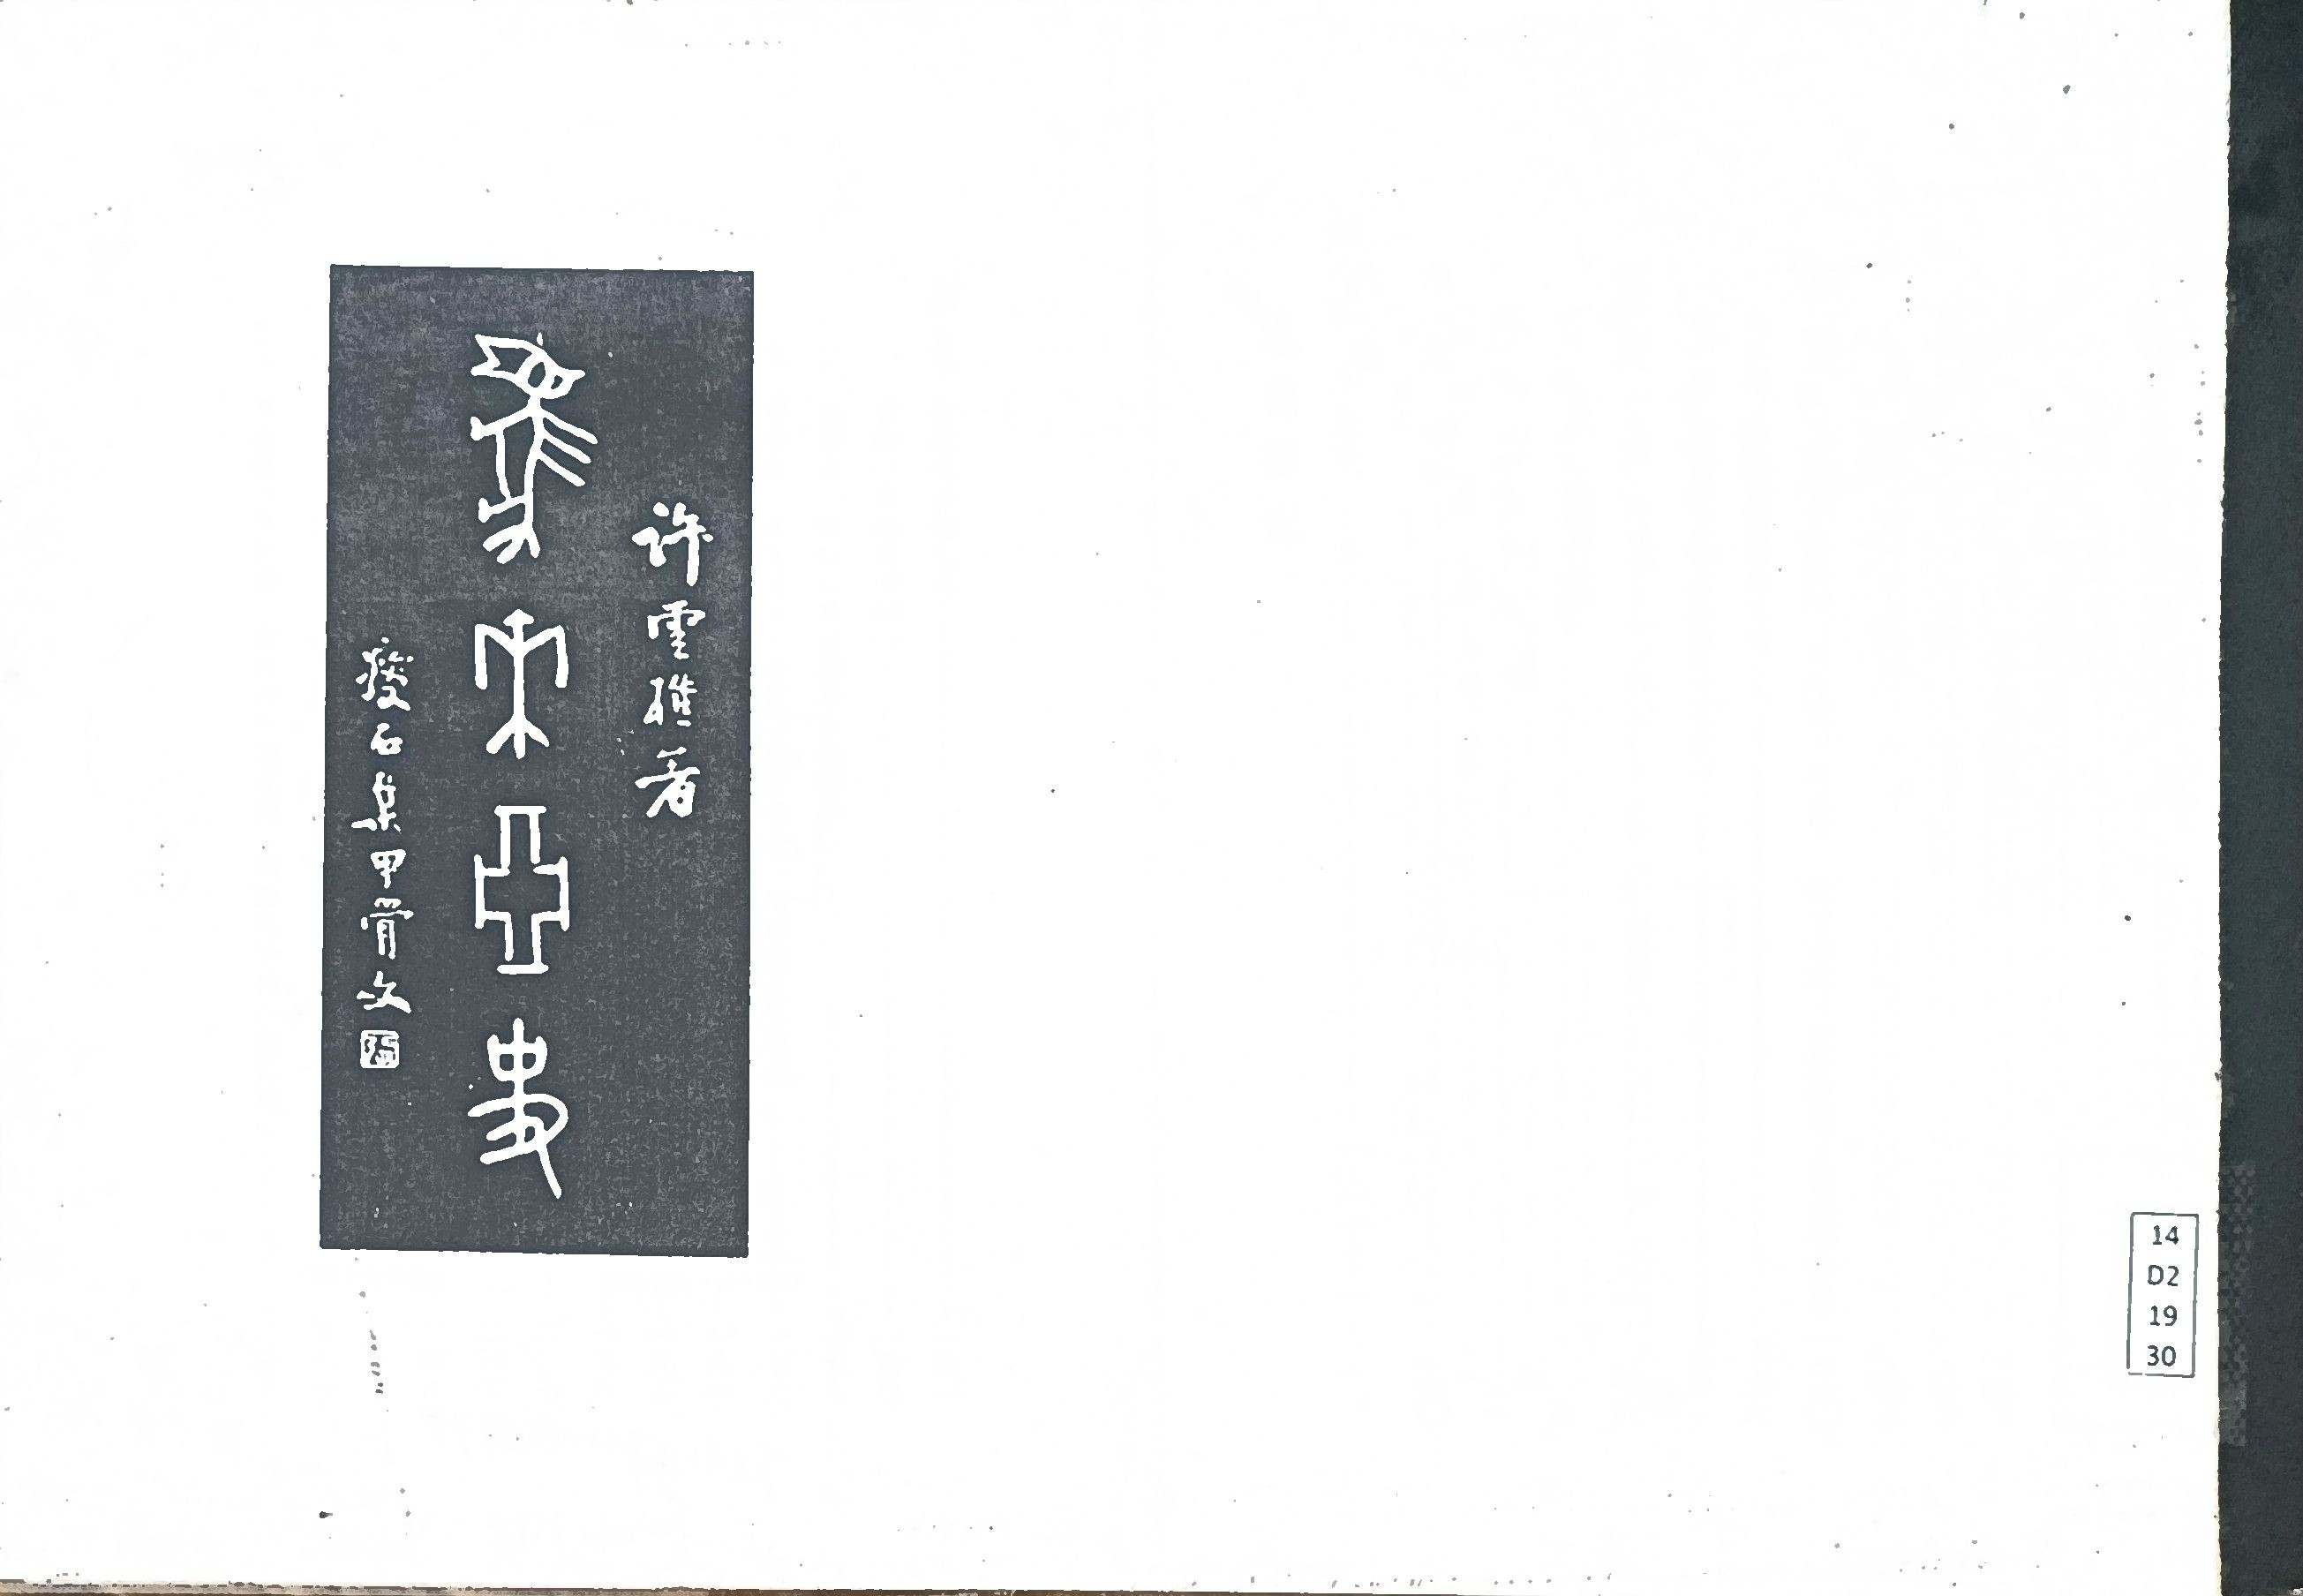 許雲樵著
馬來亞史
瘦石集甲骨文
14
D2
19
30